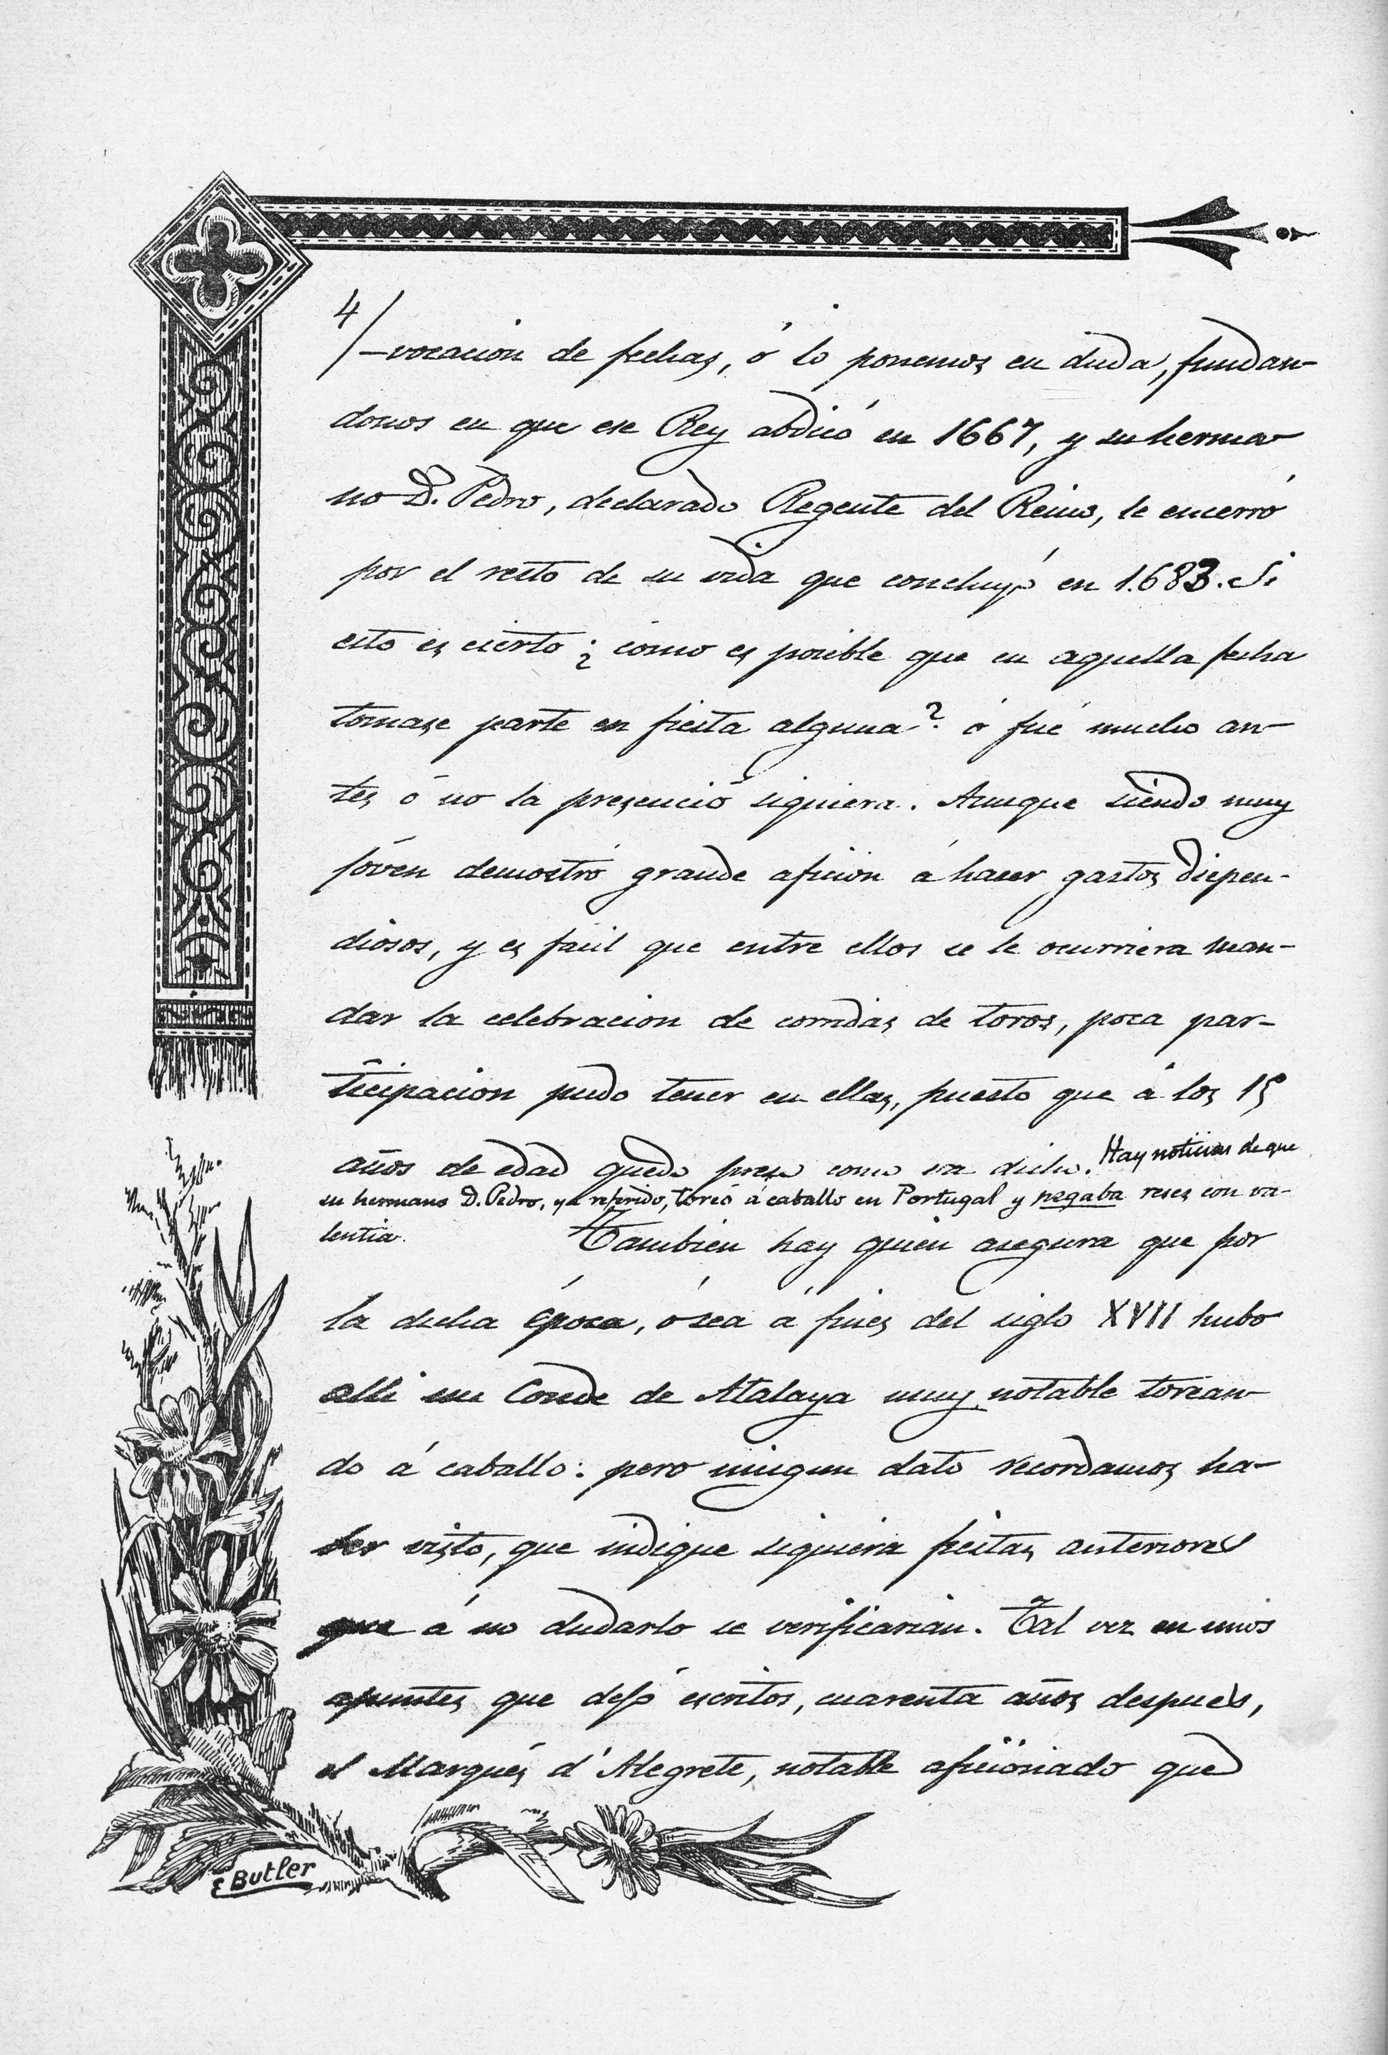 4/
-vocacion de fechas, ó lo ponemos en duda, fundan-
donos en que ese Rey abdicó en 1667, y su herma-
no D. Pedro, declarado Regente del Reino, le encerró
por el resto de su vida que concluyó en 1.683. Si
esto es cierto ¿ cómo es posible que en aquella fecha
tomase parte en fiesta alguna? ó fué mucho an-
tes ó no la presenció siquiera. Aunque siendo muy
jóven demostró grande aficion á hacer gastos dispen-
diosos, y es facil que entre ellos se le ocurriera man-
dar la celebracion de corridas de toros, poca par-
ticipacion pudo tener en ellas, puesto que á los 15
años de edad quedo preso como va dicho. Hay noticias de que
su hermano D. Pedro, ya referido, toreó á caballo en Portugal y pegaba reses con va-
lentia.
Tambien hay quien asegura que por
la dicha época, ó sea á fines del siglo XVII hubo
alli un Conde de Atalaya muy notable torean-
do á caballo: pero ningun dato recordamos ha-
ber visto, que indique siquiera fiestas anteriores
que á no dudarlo se verificarian. Tal vez en unos
apuntes que dejó escritos, cuarenta años despues,
el Marqués d'Alegrete, notable aficionado que
E Butler